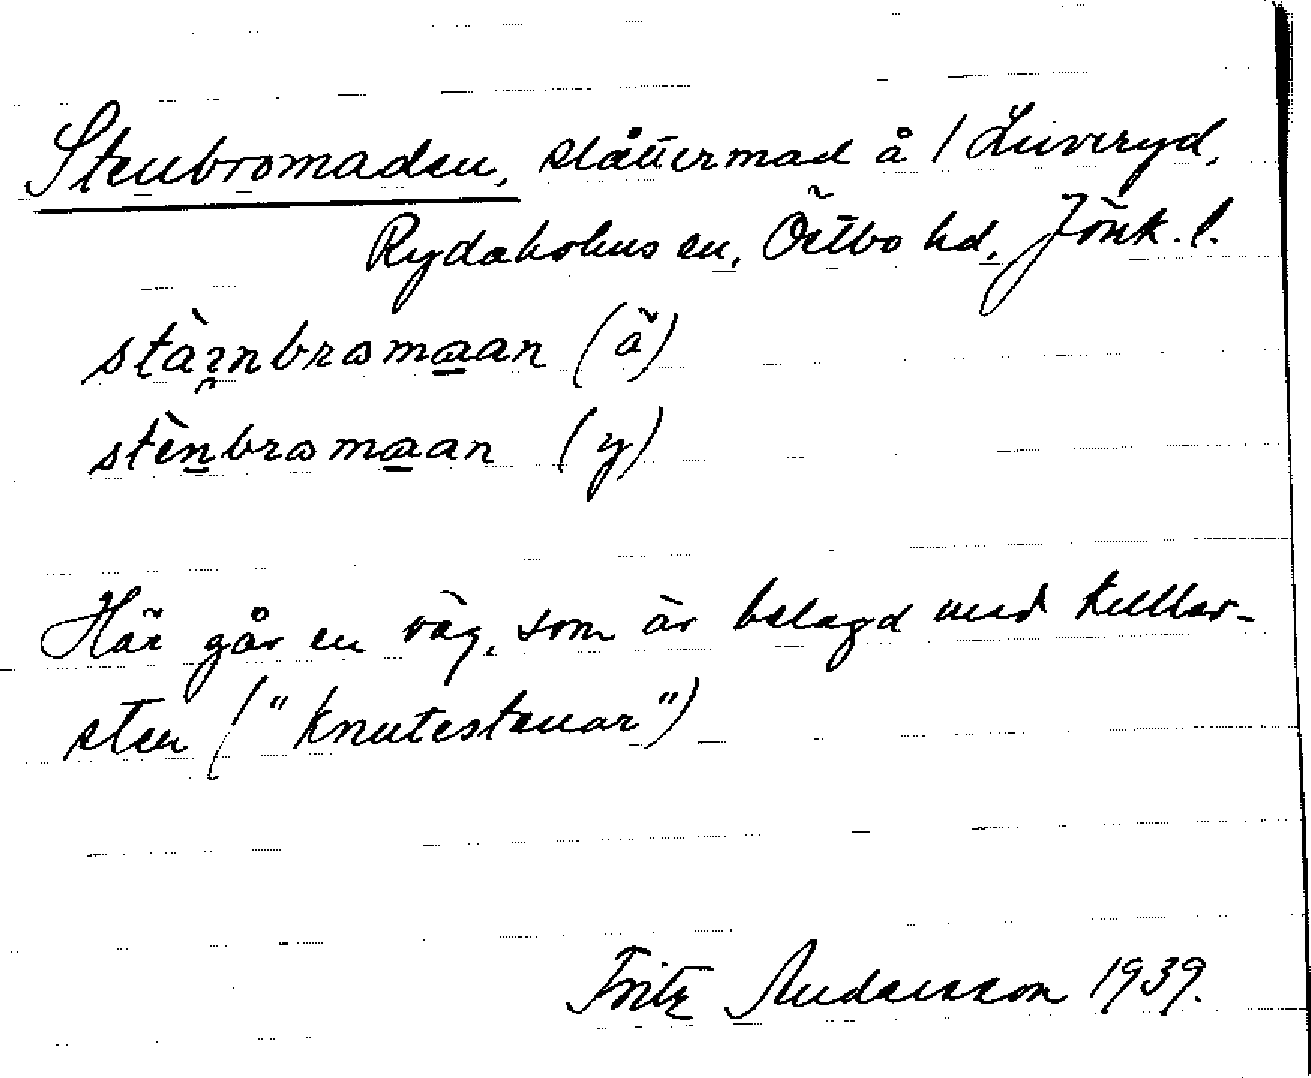 Stenbromaden, slåttermad å 1 Liveryd,
Rydaholms sn, Östbo hd, Jönk. l.
stàinbromaan (ä)
stènbromaan (y)
Här går en väg, som är belagd med kuller-
sten ("knutestenar")
Fritz Andersson 1939.